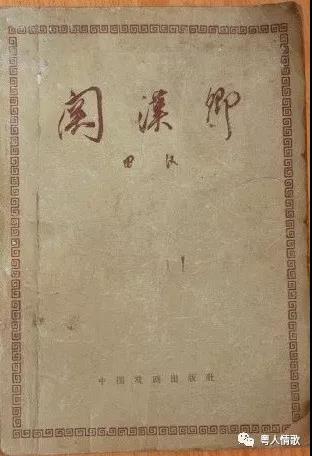 关漢卿
田汉
中国戏剧出版社
粤人情歌